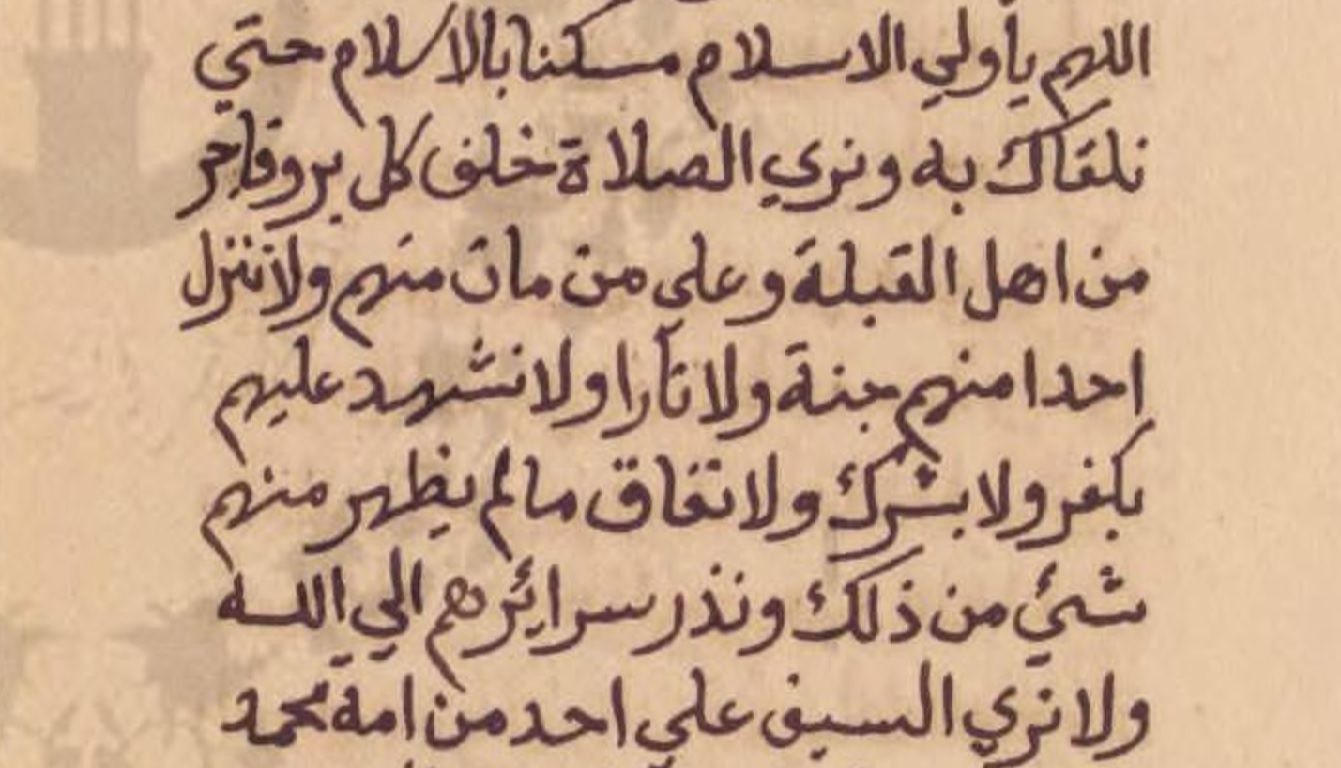 اللهم يا ولي الاسلام مسكنا بالاسلام حتي
نلقاك به ونري الصلاة خلف كل بر وفاجر
من اهل القبلة وعلي من مات منهم ولا ننزل
احدا منهم جنة ولا نارا ولا نشهد عليهم
بكفر ولا بشرك ولا نفاق ما لم يظهر منهم
شئ من ذلك ونذر سرائرهم الي الله
ولا نري السيف علي احد من امة محمد